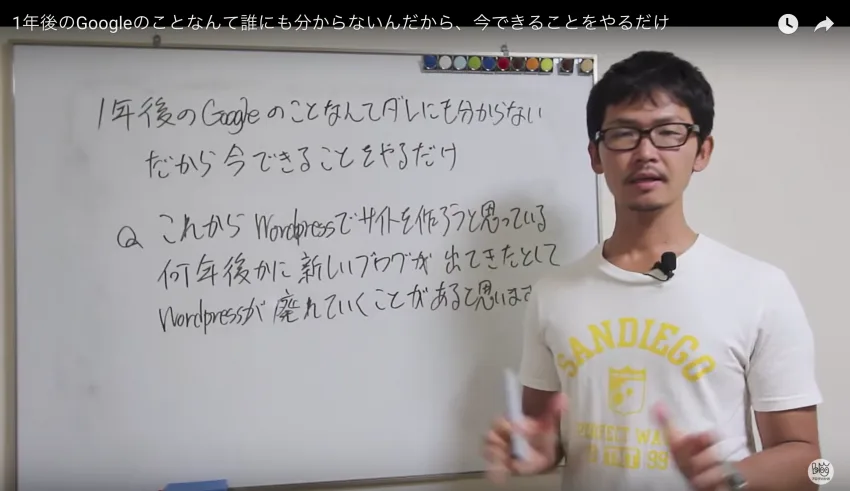 1年後のGoogleのことなんて誰にも分からないんだから、今できることをやるだけ
1年後のGoogleのことなんてダレにも分からない
だから今できることをやるだけ
Q これからWordpressでサイトを作ろうと思っている
何年後かに新しいブログが出てきたとして
Wordpressが廃れていくことがあると思います
SANDIEGO